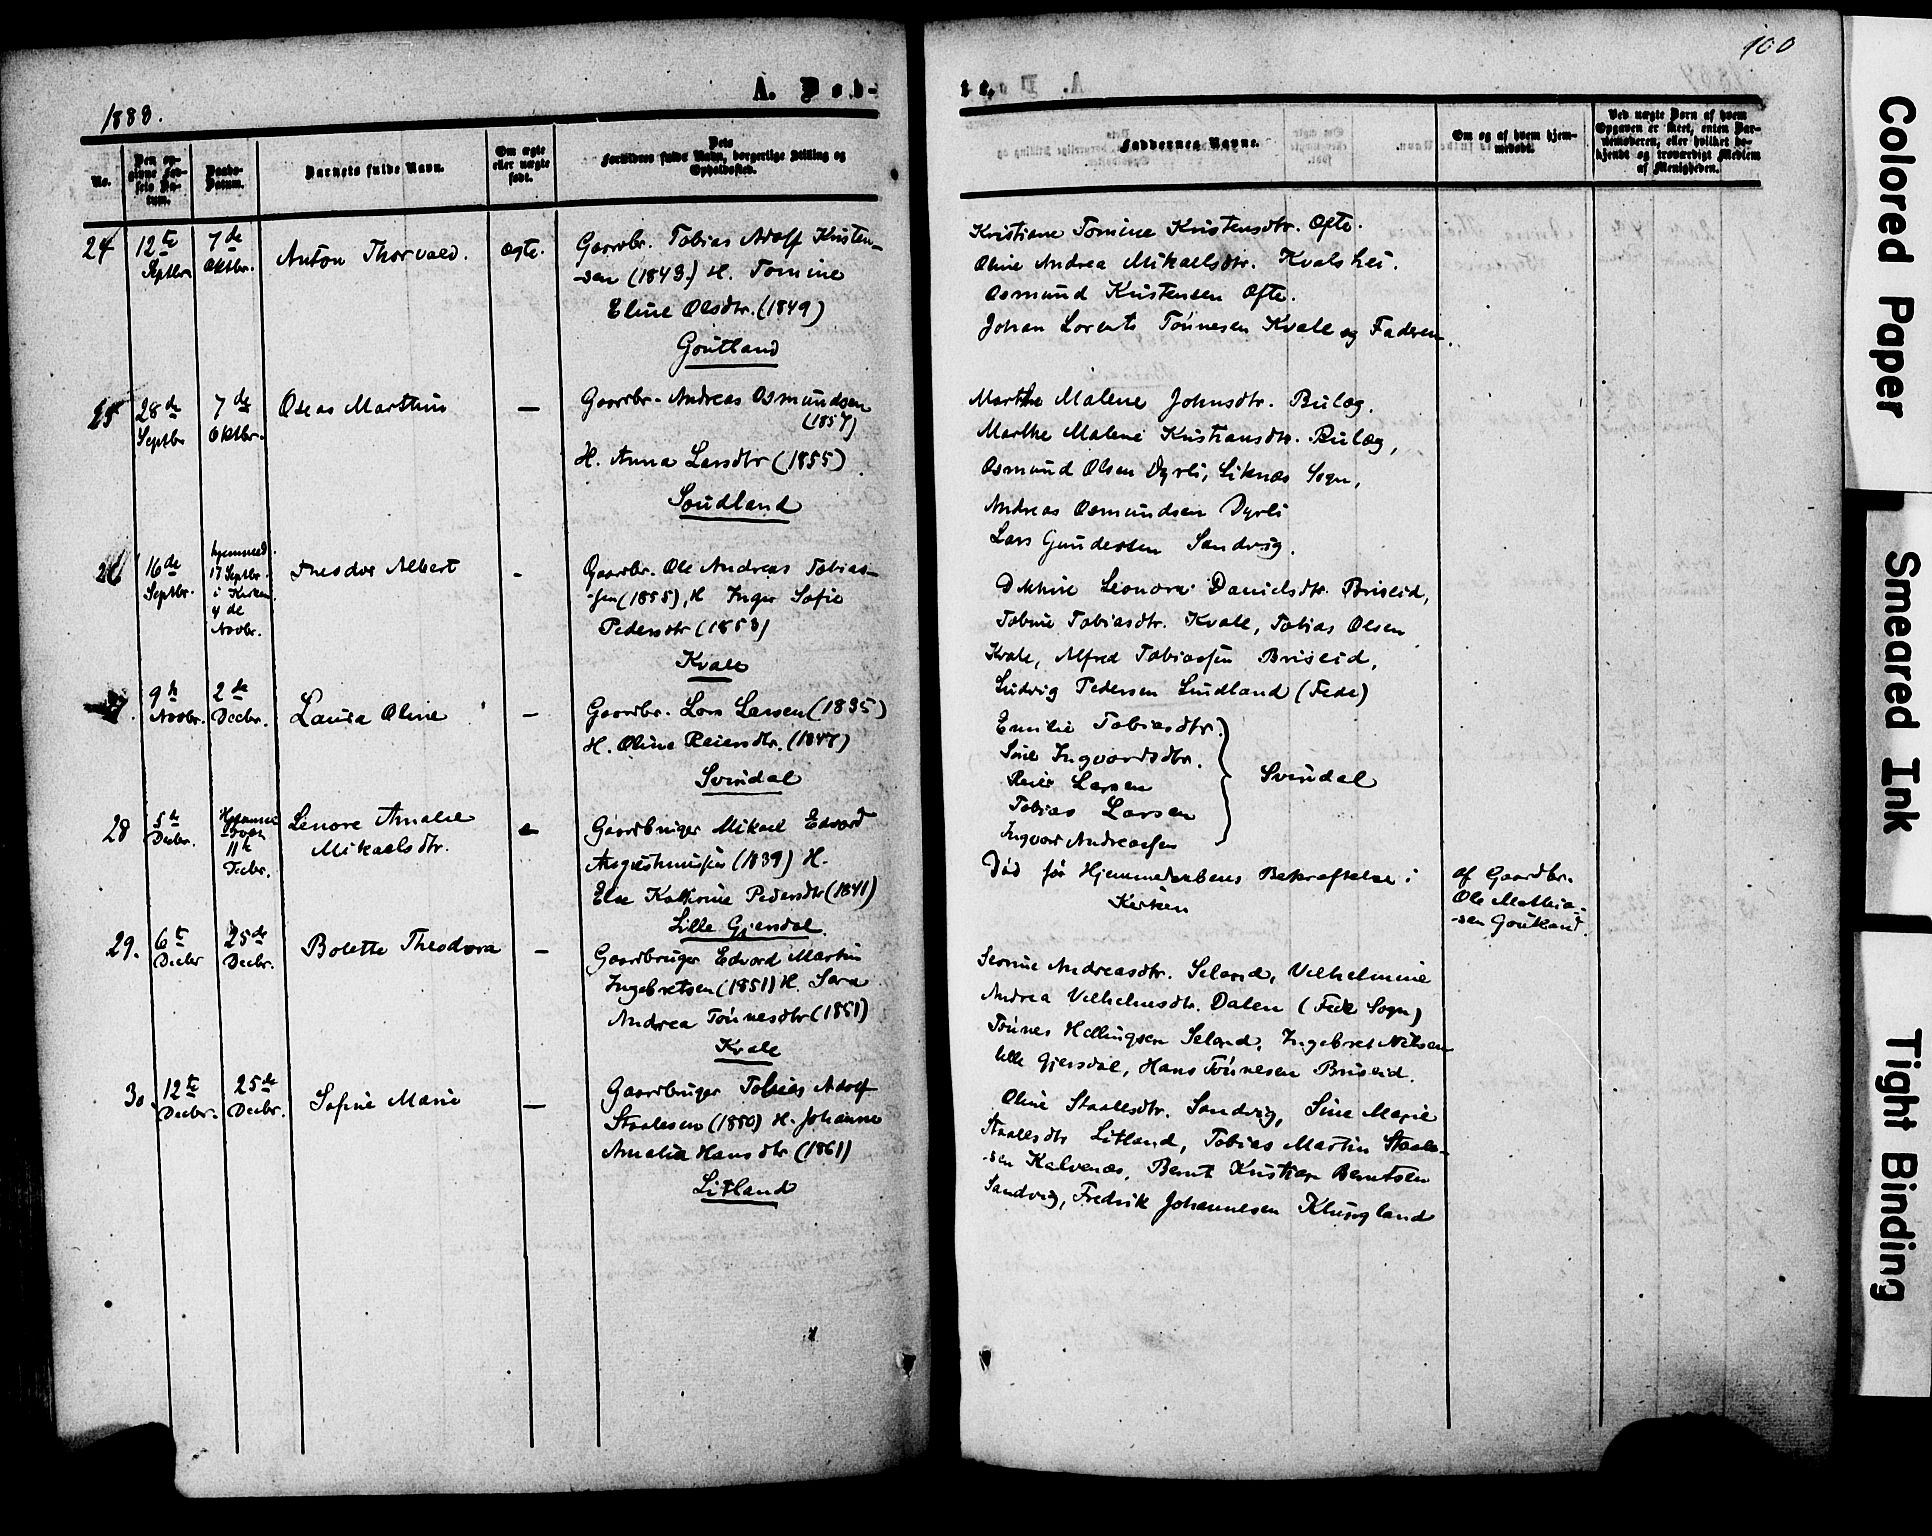 100
1883.
A. Døb-
te.
No.
Den opgivne Fødsels Datum.
Daabs-Datum.
Barnets fulde Navn.
Om ægte eller uægte født.
Dets Forældres fulde Navn, borgerlige Stilling og Opholdssted.
Faddernes Navne.
Om og af hvem hjemmedøbt.
Ved uægte Børn af hvem Opgaven er skeet, enten Barnemoderen, eller hvilket bekjendt og troværdigt Medlem af Menigheden.
24
12te Septbr.
7de Oktbr.
Anton Thorvald.
Ægte.
Gaardbr. Tobias Adolf Kristen-
sen (1843) H. Tomine
Eline Olsdtr. (1849)
Goutland
Kristiane Tomine Kristensdtr. Ofte.
Oline Andrea Mikaelsdtr. Kvalshei.
Osmund Kristensen Ofte.
Johan Lorents Tönnesen Kvale og Faderen.
25
28de Septbr
7de Oktbr.
Oseas Marthin
—
Gaardbr. Andreas Osmundsen
(1857)
H. Anna Larsdtr (1855)
Soudland
Marthe Malene Johnsdtr. Bulæg.
Marthe Malene Kristiansdtr. Bulæg,
Osmund Olsen Dyrli, Liknæs Sogn,
Andreas Osmundsen Dyrli
Lars Gundersen Sandvig.
26
16de Septbr.
hjemmed.
17 Septbr.
i Kirken
4de
Novbr.
Theodor Albert
-
Gaardbr. Ole Andreas Tobias-
sen (1855), H Inger Sofie
Pedersdtr (1853)
Kvale
Leonora Danielsdtr. Briseid,
Tobine Tobiasdtr. Kvale, Tobias Olsen
Kvale, Alfred Tobiassen Briseid,
Ludvig Pedersen Lindland (Fede)
27.
9de Novbr.
2de Decbr.
Laura Oline
—
Gaardbr. Lars Larsen (1835)
H. Oline Reiersdtr. (1847)
Svindal
Emilie Tobiasdtr.
Sine Ingvardsdtr.
Reier Larsen
Tobias Larsen
Ingvar Andreassen
Svindal
28
5te Decbr.
11te
Lenore Amalie
Mikaelsdtr.
—
Gaardbruger Mikael Edvard
Augustinussen (1839) H.
Else Katrine Pedersdtr (1841)
Lille Gjersdal.
Död før Hjemmedaabens Bekræftelse i
Kirken
af Gaardbr.
Ole Mathia-
sen Goutland.
29.
6te Decbr
25de Decbr.
Bolette Theodora
—
Gaardbruger Edvard Martin
Ingebretsen (1851) H. Sara
Andrea Tönnesdtr (1851)
Kvale
Andreasdtr. Seland, Vilhelmine
Andrea Vilhelmsdtr. Dalen (Fede Sogn)
Tönnes Hellingsen Seland, Ingebret Nilsen
lille Gjersdal, Hans Tönnesen Briseid.
30
12te Decbr.
25de Decbr.
Sofine Marie
—
Gaardbruger Tobias Adolf
Staalesen (1850) H. Johanne
Amalia Hansdtr (1861)
Litland
Oline Staalesdtr. Sandvig, Sine Marie
Staalesdtr Litland, Tobias Martin Staale-
sen Kalvenæs, Bernt Kristian Berntsen
Sandvig, Fredrik Johannesen Klungland
Colored Paper
Smeared Ink
Tight Binding